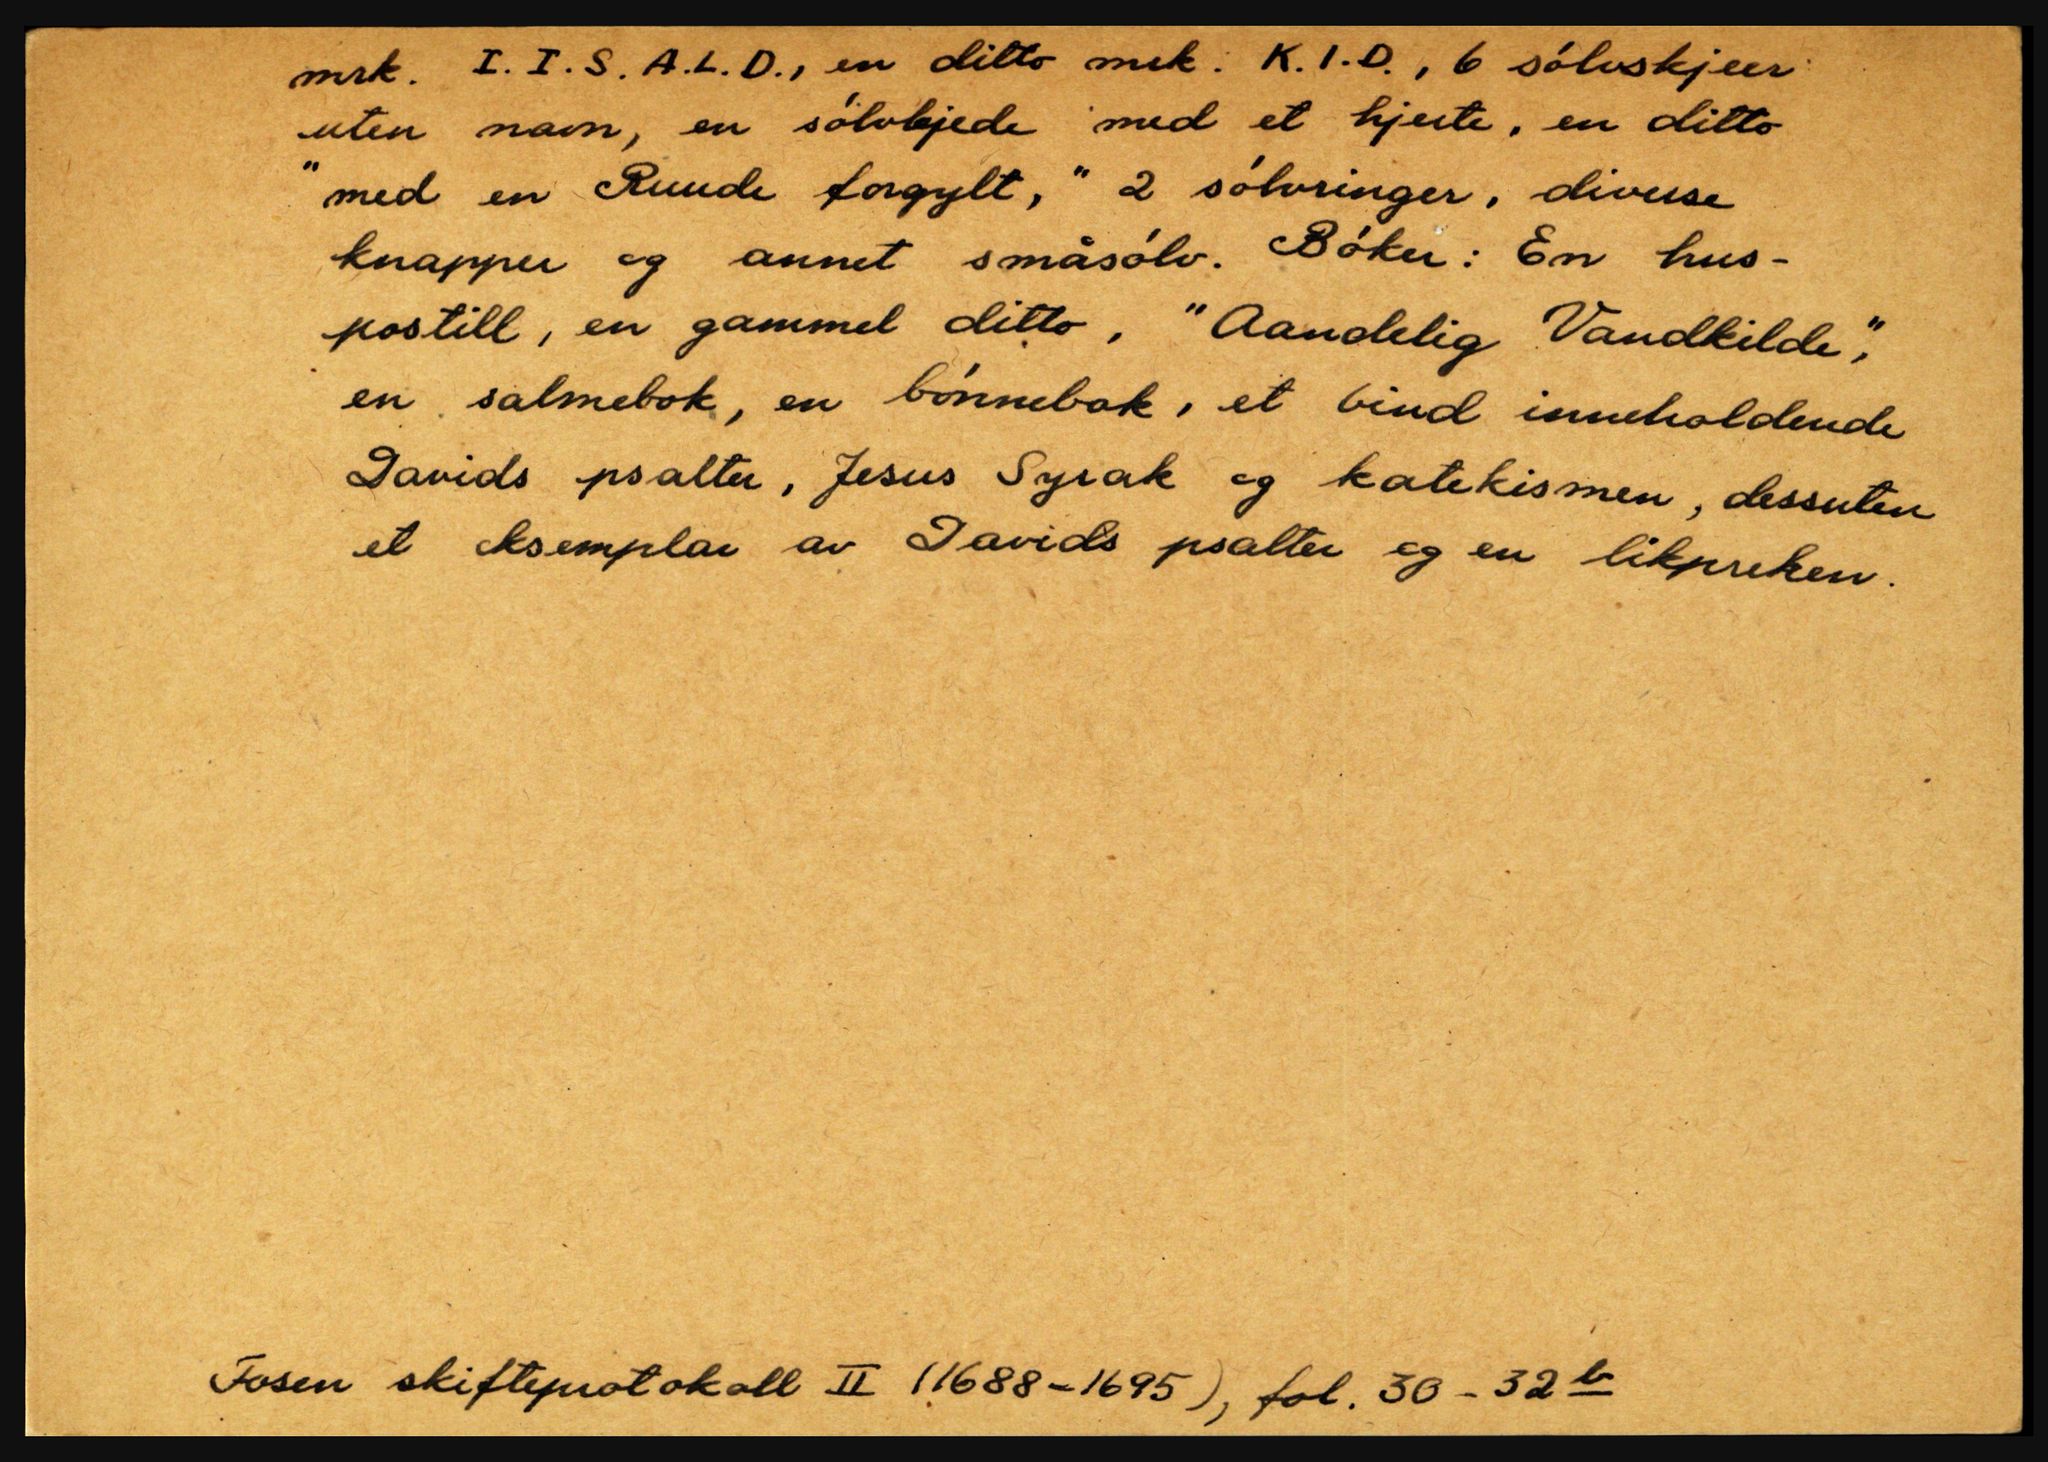 mrk. I.I.S.A.L.D., en ditto mrk: K.I.D., 6 sólvskjeer
uten navn, en sólvkjede med et hjerte, en ditto
"med en Ruude forgylt," 2 sólvringer, diverse
knapper og annet småsólv. Bóker: En hus-
postill, en gammel ditto, "Aandelig Vandkilde",
en salmebok, en bónnebok, et bind inneholdende
Davids psalter, Jesus Syrak og katekismen, dessuten
et eksemplar av Davids psalter og en likpreken.
Fosen skifteprotokoll II (1688-1695), fol. 30-32 b